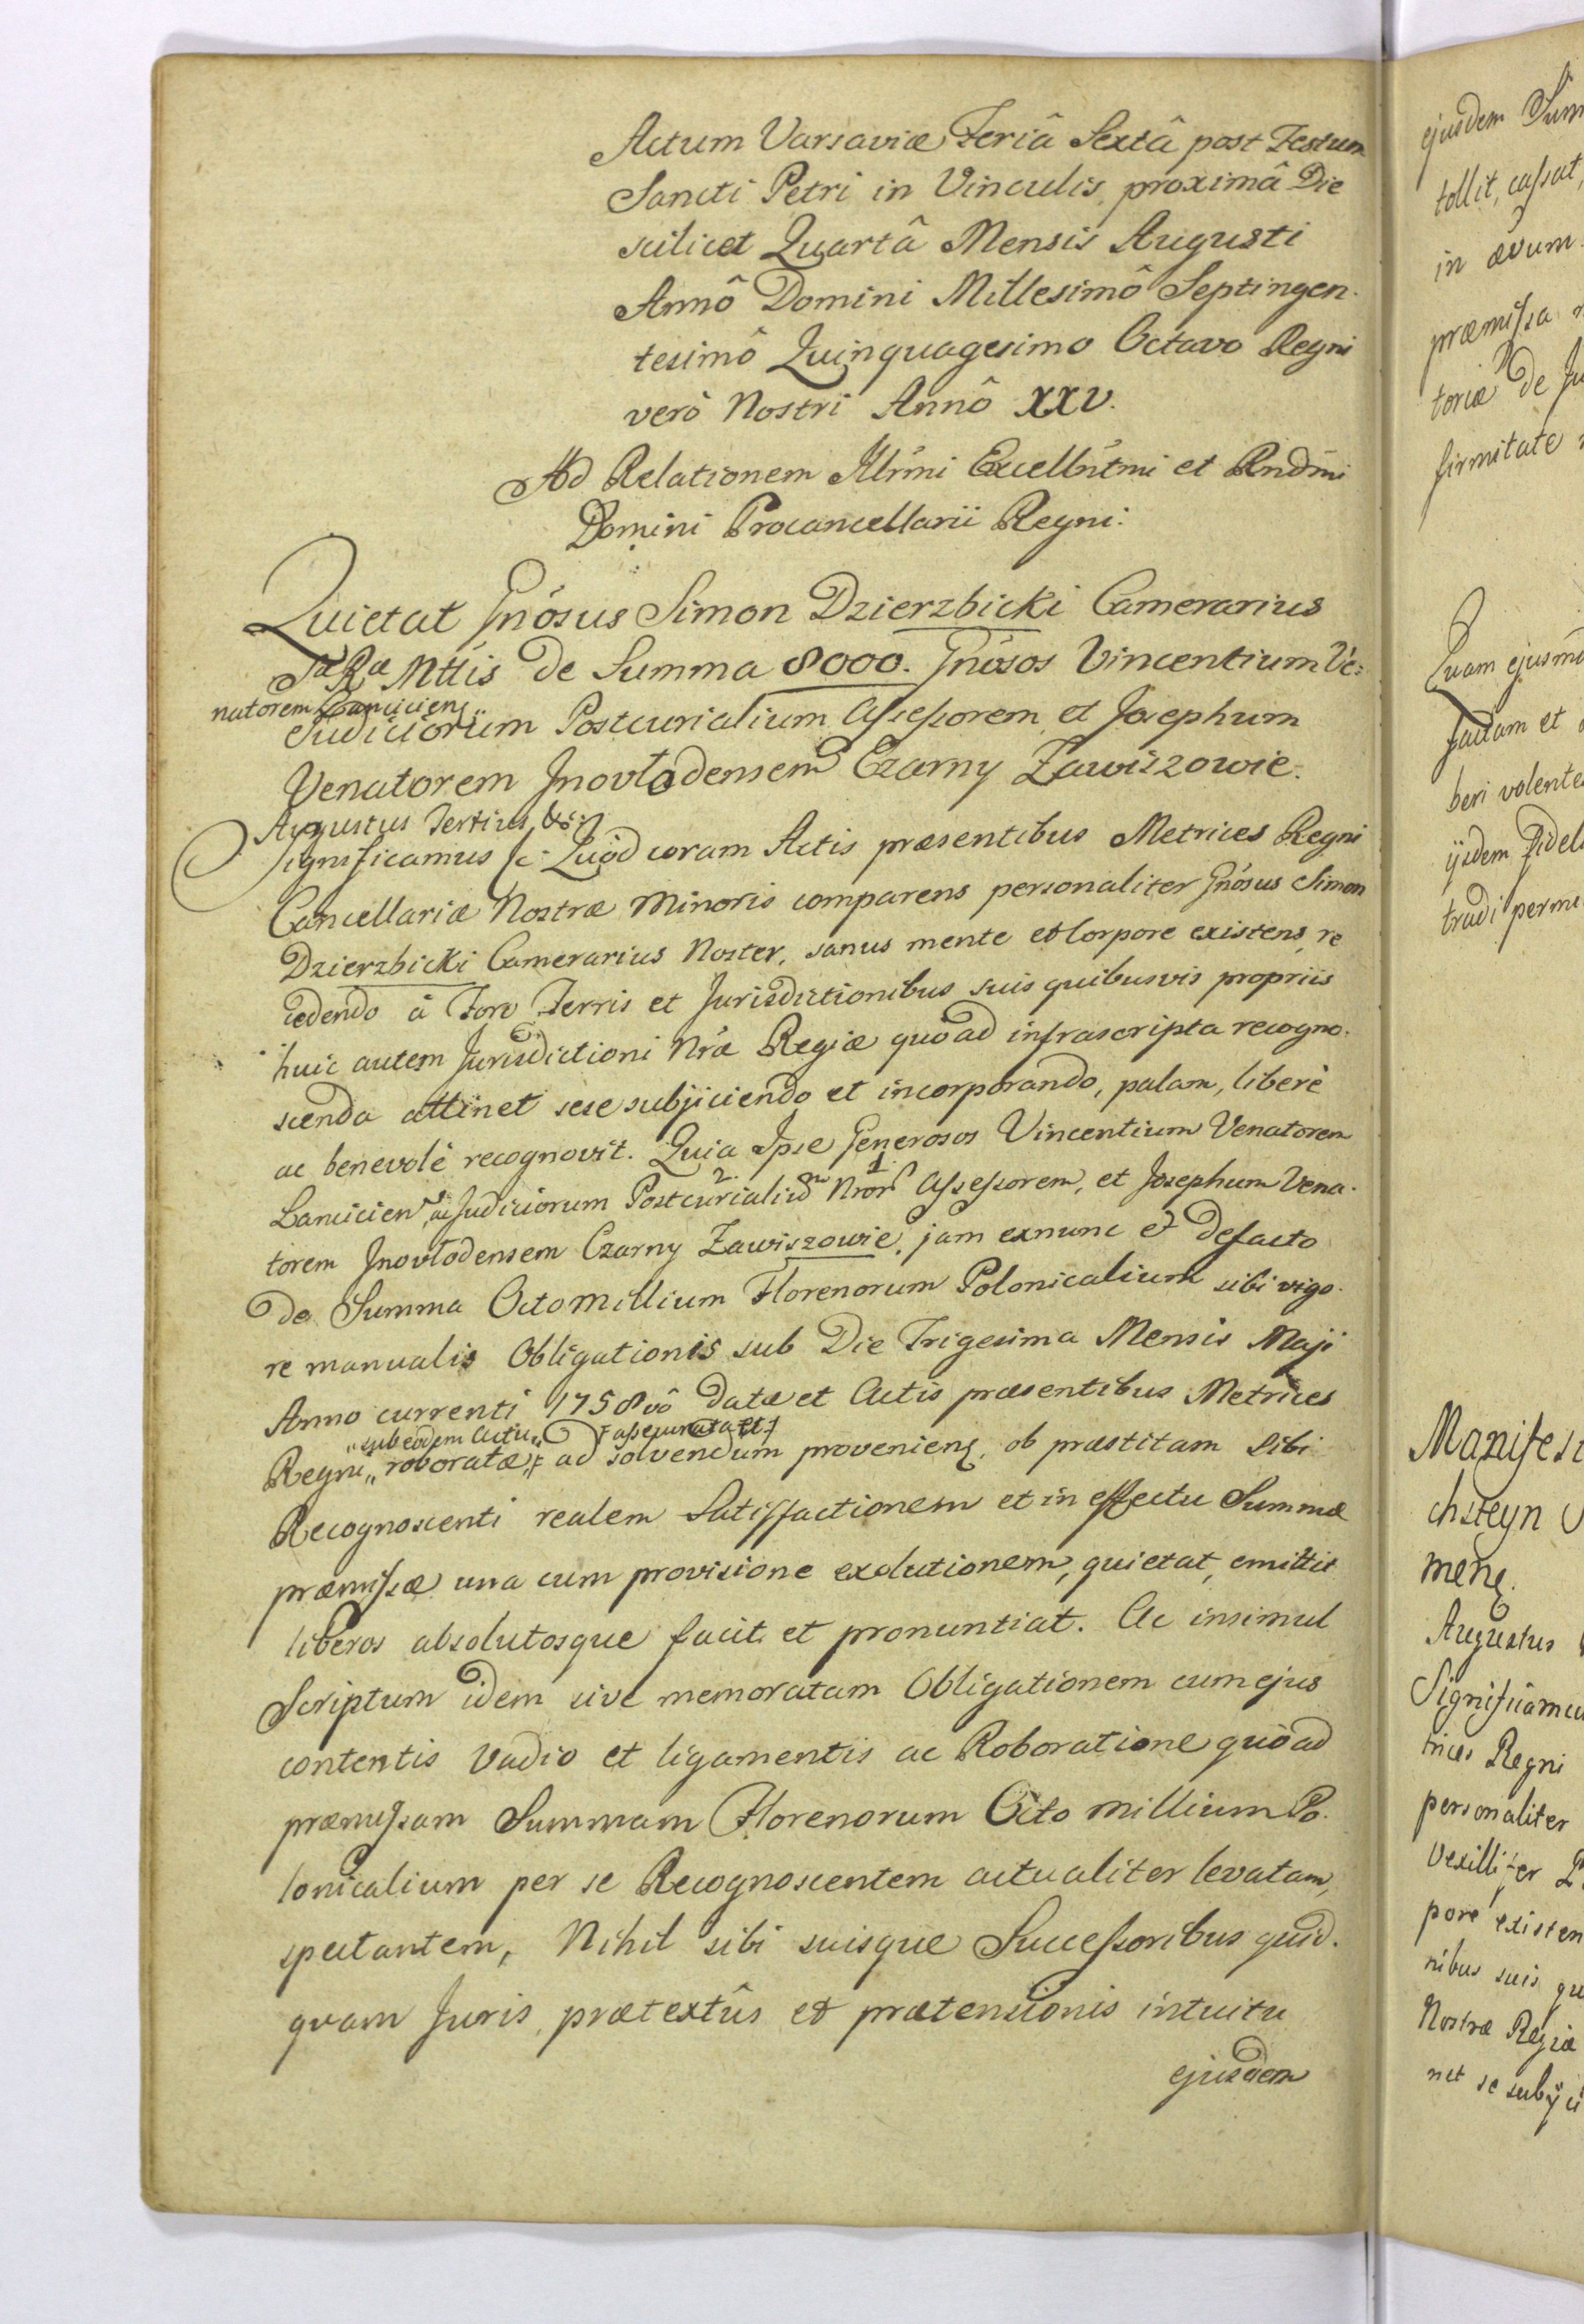 Actum Varsaviæ Feriâ Sextâ post Festum
Sancti Petri in Vinculis, proximâ Die
scilicet Quartâ Mensis Augusti
Annô Domini Millesimô Septingen-
tesimô Quinquagesimo Octavo Regni
verò Nostri Annô XXV.
Ad Relationem Illrmi Excellntmi et Rndmi
Domini Procancellarii Regni.
Quietat Gnosus Simon Dzierzbicki Camerarius
Sæ Ræ Mttis de Summa 8000. Gnosos Vincentium Ve=
natorem Lancicien:
Judiciorum Postcurialium Assessorem et Josephum
Venatorem Inovlodensem Czarny Zawiszowie.
Augustus Tertius &c:
Significamus &c: Quod coram Actis præsentibus Metrices Regni
Cancellariæ Nostræ Minoris comparens personaliter Gnosus Simon
Dzierzbicki Camerarius Noster, sanus mente et Corpore existens, re
cedendo à Foro Terris et Jurisdictionibus suis quibusvis propriis
huic autem Jurisdictioni Nræ Regiæ quoad infrascripta recogno-
scenda attinet sese subjiciendo et incorporando, palam, liberè
ac benevolè recognovit. Quia Ipse Generosos Vincentium Venatorem
Lancicien, ac Judiciorum Postcurialium 2. Nror 1. Assessorem, et Josephum Vena-
torem Inovlodensem Czarny Zawiszowie, jam exnunc et defacto
de Summa Octo Millium Florenorum Polonicalium sibi vigo-
re manualis Obligationis sub Die Trigesima Mensis Maji
Anno currenti 1758vô datæ et Actis præsentibus Metrices
"sub eodem Actu" assecurata et
Regni "roboratæ, ad solvendum proveniens, ob præstitam sibi
Recognoscenti realem Satisfactionem et in effectu Summæ
præmissæ una cum provisione exolutionem, quietat, emittit
liberos absolutosque facit et pronuntiat. Ac insimul
Scriptum idem sive memoratam Obligationem cum ejus
contentis Vadio et ligamentis ac Roboratione quoad
præmissam Summam Florenorum Octo millium Po-
lonicalium per se Recognoscentem actualiter levatam,
spectantem, Nihil sibi suisque Successoribus quid-
quam Juris, prætextûs et prætensionis intuitu
ejusdem
ejusdem Sum
tollit, cassat,
in ævum.
præmissa
toriæ de Ju
firmitate
Quam ejusmo
factam et
beri volente
ijsdem Fidel
tradi permi
Manifest
chsteyn
mens.
Augustus
Significamu
trices Regni
personaliter
Vexillifer
pore existen
nibus suis qu
Nostræ Regiæ
net se subjic